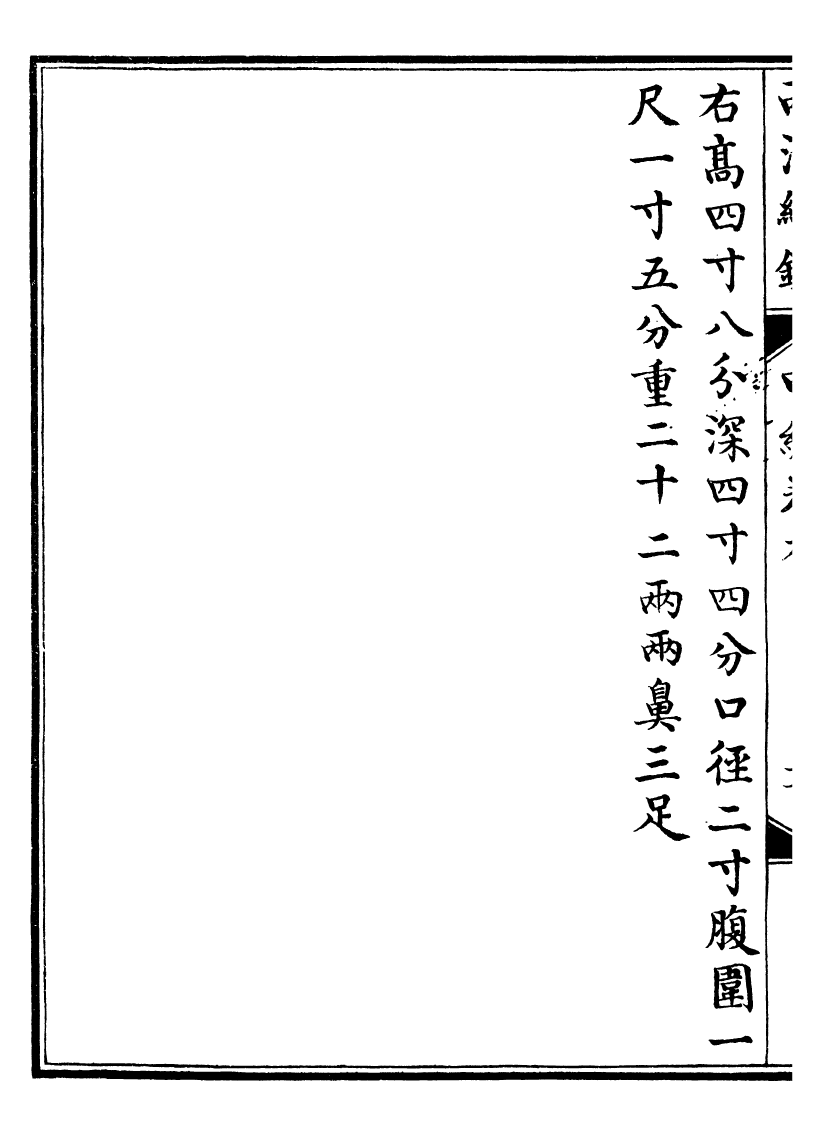 右髙四寸八分深四寸四分口徑二寸腹圍一
尺一寸五分重二十二兩兩鼻三足